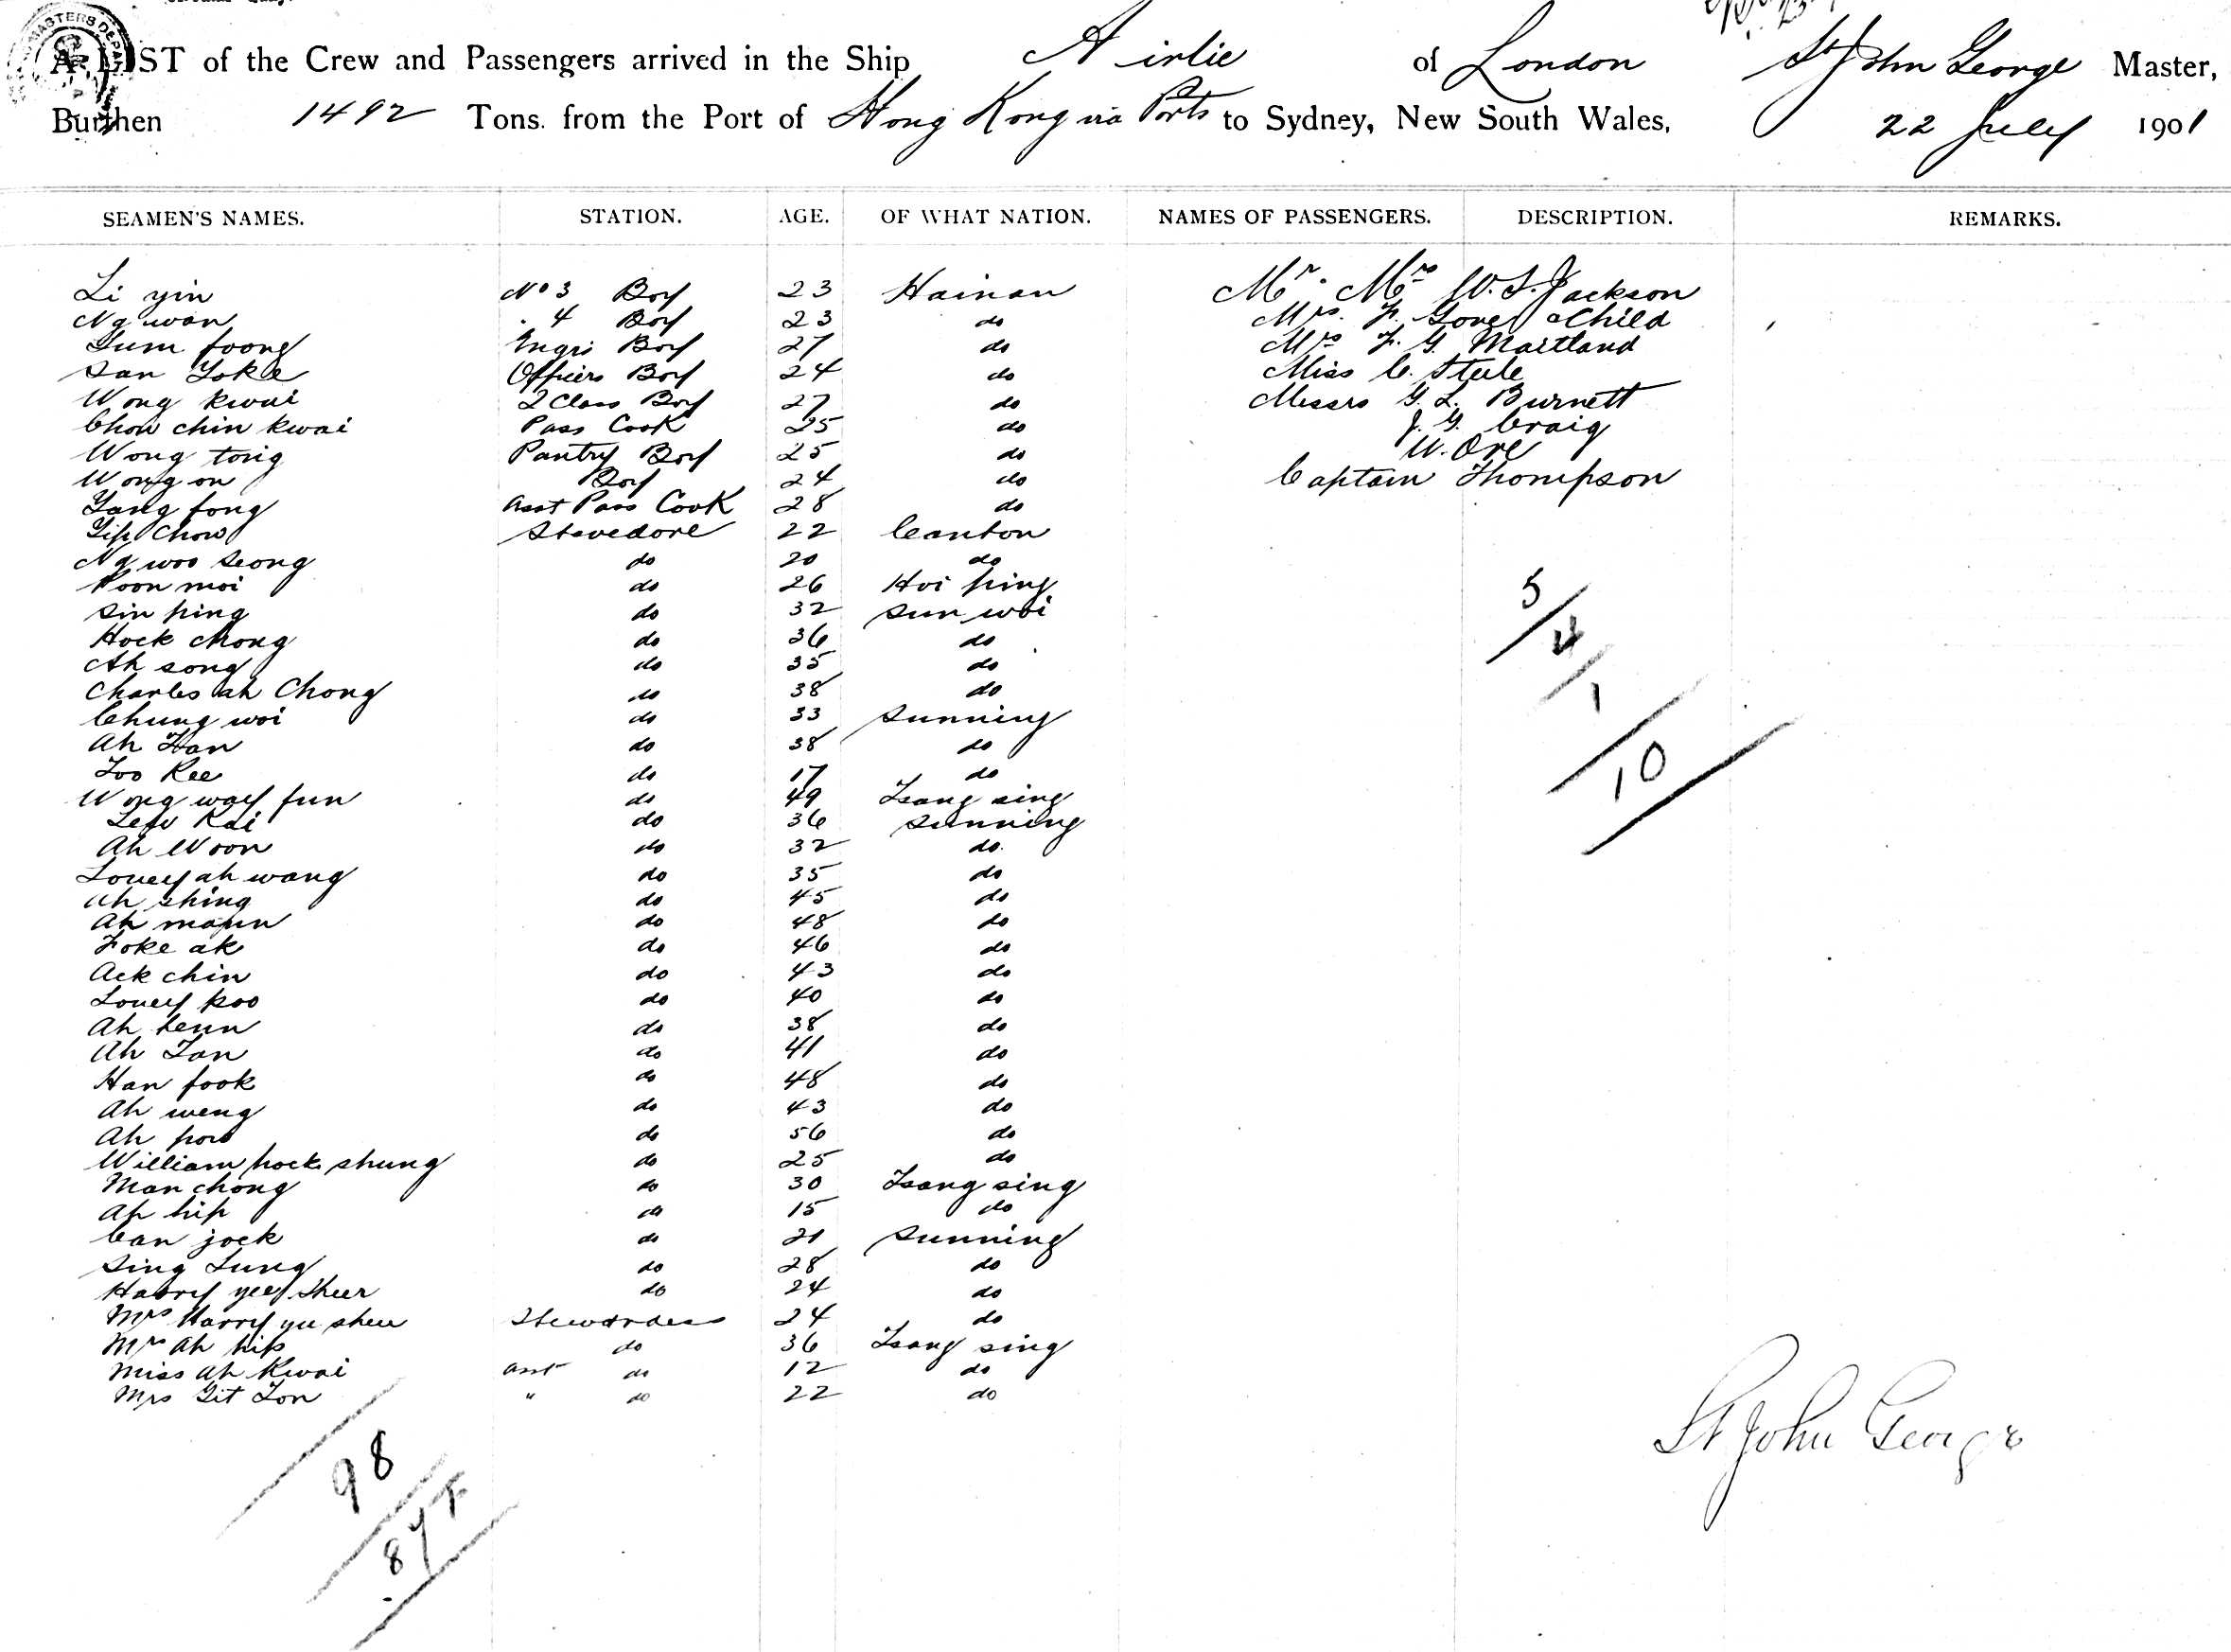 A LIST of the Crew and Passengers arrived in the Ship Airlie of London St John George Master,
Burthen 1492 Tons. from the Port of Hong Kong via Ports to Sydney, New South Wales, 22 July 1901
SEAMEN'S NAMES. STATION. AGE. OF WHAT NATION. NAMES OF PASSENGERS. DESCRIPTION. REMARKS.
Li yin No 3 Boy 23 Hainan Mr. Mrs W.S. Jackson
Ng wan " 4 Boy 23 do Mrs. F. Gove & Child
Yum foong Engrs Boy 27 do Mrs F. G. Maitland
San Yoke Officers Boy 24 do Miss C. Steele
Wong Kwai 2 Class Boy 27 do Messrs G. L. Burnett
Chow chin kwai Pass Cook 25 do J. G. Craig
Wong tong Pantry Boy 25 do W. Ore
Wong on Boy 24 do Captain Thompson
Yang fong Asst Pass Cook 28 do
Yip Chow Stevedore 22 Canton
Ng woo seong do 20 do
Poon moi do 26 Hoi ping
Sin ping do 32 Sun woi
Hock chong do 36 do
Ah song do 35 do
Charles ah Chong do 38 do
Chung woi do 33 Sunning
Ah Han do 38 do
Loo Kee do 17 do
Wong way fun do 49 Tsang sing
Lew Kai do 36 Sunning
Ah Woon do 32 do
Louey ah wang do 35 do
Ah shing do 45 do
Ah do 48 do
Foke ak do 46 do
Ack chin do 43 do
Louey koo do 40 do
Ah do 38 do
Ah Tan do 41 do
Han fook do 48 do
Ah weng do 43 do
Ah pow do 56 do
William hock shung do 25 do
Man chong do 30 Tsang sing
Ah hip do 15 do
Can jock do 21 Sunning
Sing Lung do 28 do
Harry yee Sheer do 24 do
Mrs Harry yee sheer Stewardess 24 do
Mrs Ah hip do 36 Tsang sing
Miss Ah Kwai asst do 12 do
Mrs Git Ton " do 22 do
5/4/1
10
98
87
St John George